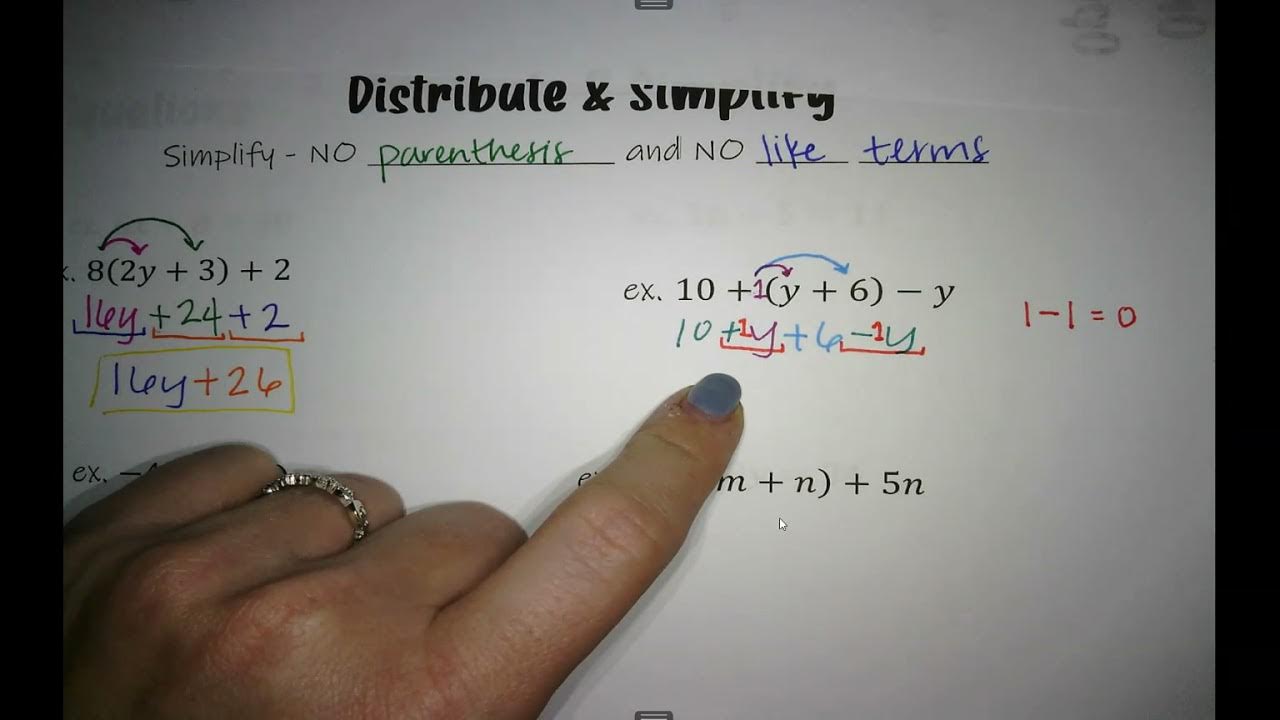 Distribute & Simplify
Simplify - NO parenthesis and NO like terms
8(2y + 3) + 2
16y +24 +2
16y+26
ex. 10 +1(y + 6) − y
10 +1y +6 −1y
1−1=0
ex. −
m + n) + 5n